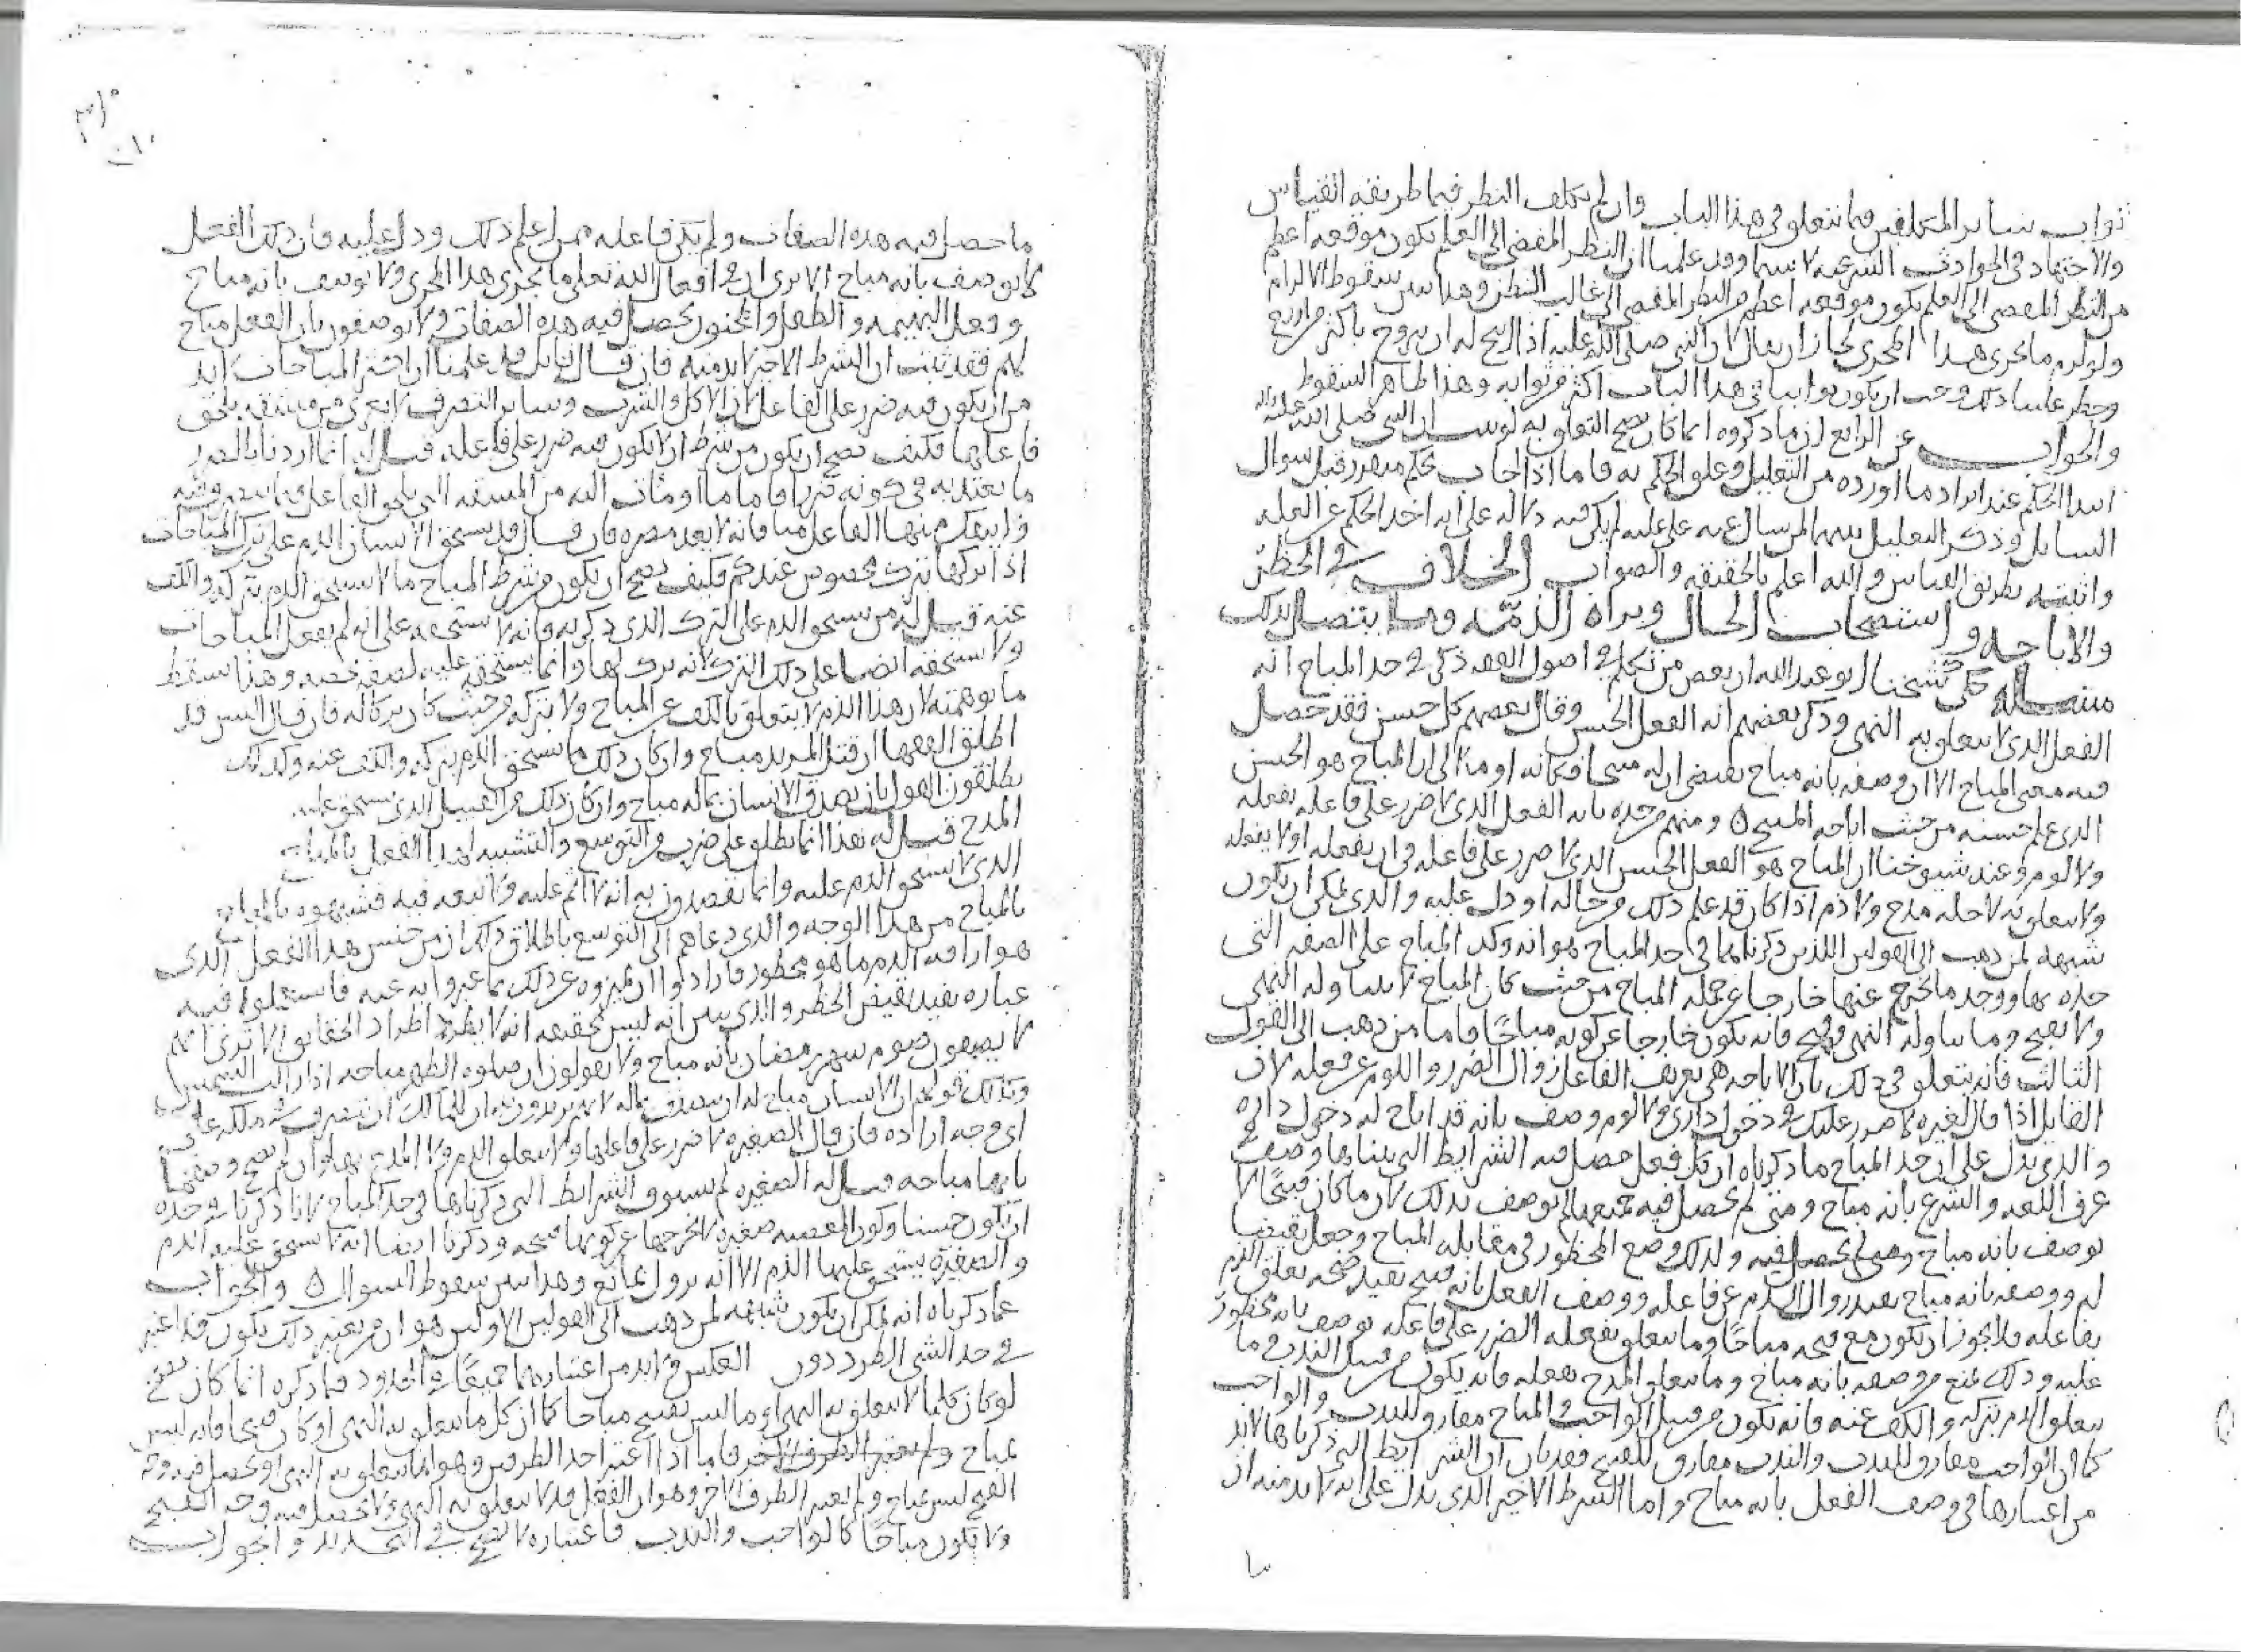 ثواب سائر المكلفين فيما يتعلق في هذا الباب وان لم يكلف النظر فيما طريقه القياس
والاجتهاد في الحوادث الشرعيه لا سيما وقد علمنا ان النظر المفضي الى العلم يكون موقعه اعظم
من النظر المفضي الى العلم يكون موقعه اعظم من النظر المفضي الى غالب النظر وهذا يبين سقوط الالزام
ولو لزم ما يجري هذا المجرى لجاز ان يقال لان النبي صلى الله عليه اذا ابيح له ان يزوج باكثر من اربع
وحظر علينا ذلك وجب ان يكون ثوابنا في هذا الباب اكثر من ثوابه وهذا ظاهر السقوط
والجواب عن الرابع ان ما ذكروه انما كان يصح التعلق به لو ان النبي صلى الله عليه
ابتدا الحكم عند ايراد ما اورده من التعليل وعلق الحكم به فاما اذا اجاب بحكم متقرر قبل سوال
السايل وذكر التعليل لم يكن فيه دلاله على انه اخذ الحكم عن العله
واثبته بطريق القياس والله اعلم بالحقيقه والصواب الخلاف في الحظر
والاباحه واستصحاب الحال وبراه الذمه وما يتصل بذلك
مسله حكى شيخنا ابو عبد الله ان بعض من تكلم في اصول الفقه ذكر في حد المباح انه
الفعل الذي لا يتعلق به النهي وذكر بعضهم انه الفعل الحسن وقال بعضهم كل حسن فقد حصل
فيه معنى المباح الا ان وصفه بانه مباح يقتضي ان له مبيحا فكانه اوما الى ان المباح هو الحسن
الذي علم حسنه من حيث اباحه المبيح ٥ ومنهم من حده بانه الفعل الذي لا ضرر على فاعله بفعله
ولا لوم وعند شيوخنا ان المباح هو الفعل الحسن الذي لا ضرر على فاعله في ان يفعله او لا يفعله
ولا يتعلق به لاجله مدح ولا ذم اذا كان قد علم ذلك من حاله او دل عليه والذي يمكن ان يكون
شبهه لمن ذهب الى القولين اللذين ذكرناهما في حد المباح هو انه وجد المباح على الصفه التي
حده بها ووجد ما يخرج عنها خارجا عن جمله المباح من حيث كان المباح لا يتناوله النهي
ولا يقبح وما يتناوله النهي وقبح فانه يكون خارجا عن كونه مباحا فاما من ذهب الى القول
الثالث فانه يتعلق في ذلك بان الاباحه هي تعريف الفاعل زوال الضرر واللوم عن فعله لان
القايل اذا قال لغيره لا ضرر عليك في دخول داري ولا لوم وصف بانه قد اباح له دخول داره
والذي يدل على ان حد المباح ما ذكرناه ان كل فعل حصل فيه الشرايط التي بيناها وصف
عرف اللغه والشرع بانه مباح ومتى لم يحصل فيه جميعها لم يوصف بذلك لان ما كان قبيحا لا
يوصف بانه مباح ولذلك وضع المحظور في مقابله المباح وجعل نقيضا
له ووصفه بانه مباح يفيد زوال الذم عن فاعله ووصف الفعل بانه قبيح يفيد صحه تعلق الذم
بفاعله فلا يجوز ان يكون مع قبحه مباحا وما يتعلق بفعله الضرر على فاعله يوصف بانه محظور
عليه وذلك يمنع من وصفه بانه مباح وما يتعلق المدح بفعله فانه يكون من قبيل الندب وما
يتعلق الذم بتركه والكف عنه فانه يكون من قبيل الواجب والمباح مفارق للندب والواجب
كما ان الواجب مفارق للندب والندب مفارق للقبيح فقد بان ان الشرايط التي ذكرناها لا بد
من اعتبارها في وصف الفعل بانه مباح واما الشرط الاخير الذي يدل على انه لا بد منه ان
ما حصل فيه هذه الصفات ولم يكن فاعله ممن اعلم ذلك ودل عليه فان ذلك الفعل
لا يوصف بانه مباح الا ترى ان في افعال الله تعلى ما يجري هذا المجرى ولا يوصف بانه مباح
وفعل البهيمه والطفل والمجنون يحصل فيه هذه الصفات ولا يوصفون بان الفعل مباح
لهم فقد ثبت ان الشرط الاخير لا بد منه فان قال قايل قد علمنا ان اكثر المباحات لا بد
من ان يكون فيه ضرر على الفاعل لان الاكل والشرب وساير التصرف لا يعرى من مشقه يلحق
فاعلها فكيف يصح ان يكون من شرطه ان لا يكون فيه ضرر على فاعله قيل له انما اردنا بالضرر
ما يعتد به في كونه ضررا فاما ما اومات اليه من المشقه التي يلحق الفاعل
ولا ينفك منها الفاعل منا فانه لا يعد مضره فان قال قد يستحق الانسان الذم على ترك المباحات
اذا تركها بترك مخصوص عندكم فكيف يصح ان يكون من شرط المباح ما لا يستحق الذم بتركه والكف
عنه قيل له من يستحق الذم على الترك الذي ذكرته فانه لا يستحقه على انه لم يفعل المباحات
ولا يستحقه ايضا على ذلك الترك لانه ترك لها وانما يستحقه عليه لصفه تخصه وهذا يسقط
ما توهمته لان هذا الذم لا يتعلق بالكف عن المباح ولا بتركه من حيث كان تركا له فان قال اليس قد
اطلق الفقها ان قتل المرتد مباح وان كان ذلك مما يستحق الذم بتركه والكف عنه وكذلك
يطلقون القول بان تصدق الانسان بماله مباح وان كان ذلك من القبيل الذي يستحق عليه
المدح قيل له هذا انما يطلق على ضرب من التوسع والتشبيه لهذا الفعل بالمباح
الذي لا يستحق الذم عليه وانما يقصدون به انه لا اثم عليه ولا تبعه فيه فشبهوه بالمباح
بالمباح من هذا الوجه والذي دعاهم الى التوسع باطلاق ذلك ان من جنس هذا الفعل الذي
هو اراقه الدم ما هو محظور فارادوا ان يميزوه عن ذلك بما عبروا به عنه فاستعملوا فيه
عباره تفيد نقيض الحظر والذي يبين انه ليس بحقيقه انه لا يطرد اطراد الحقايق الا ترى انهم
لا يصفون صوم شهر رمضان بانه مباح ولا يقولون ان صلوه الظهر مباحه اذا زالت الشمس
وكذلك قولهم ان الانسان مباح له ان يتصدق بماله لانهم يريدون به ان للمالك ان يتصرف في ملكه على
اي وجه اراده فان قال الصغيره لا ضرر على فاعلها ولا يتعلق الذم ولا المدح بها وان لم يصح وصفها
بانها مباحه قيل له الصغيره لم تستوف الشرايط التي ذكرناها في حد المباح لانا ذكرنا في حده
ان يكون حسنا وكون المعصيه صغيره لا يخرجها عن كونها قبيحه وذكرنا ايضا انه لا يستحق عليه الذم
والصغيره يستحق عليها الذم الا انه يزول لمانع وهذا يبين سقوط السوال ٥ والجواب
عما ذكرناه انه يمكن ان يكون شبهه لمن ذهب الى القولين الاولين هو ان من يعتبر ذلك يكون قد اعتبر
في حد الشي الطرد دون العكس ولا بد من اعتبارهما جميعا في الحدود فما ذكره انما كان يصح
لو كان كلما لا يتعلق به النهي او ما ليس بقبيح مباحا كما ان كل ما يتعلق به النهي او كان قبيحا فانه ليس
بمباح فاما اذا اعتبر احد الطرفين وهو انما يتعلق به النهي او يحصل فيه وجه
القبح ليس بمباح ولم يعتبر الطرف الاخر وهو ان الفعل قد لا يتعلق به النهي ولا يحصل فيه وجه القبح
ولا يكون مباحا كالواجب والندب فاعتباره لا يصح في التحديد والجواب